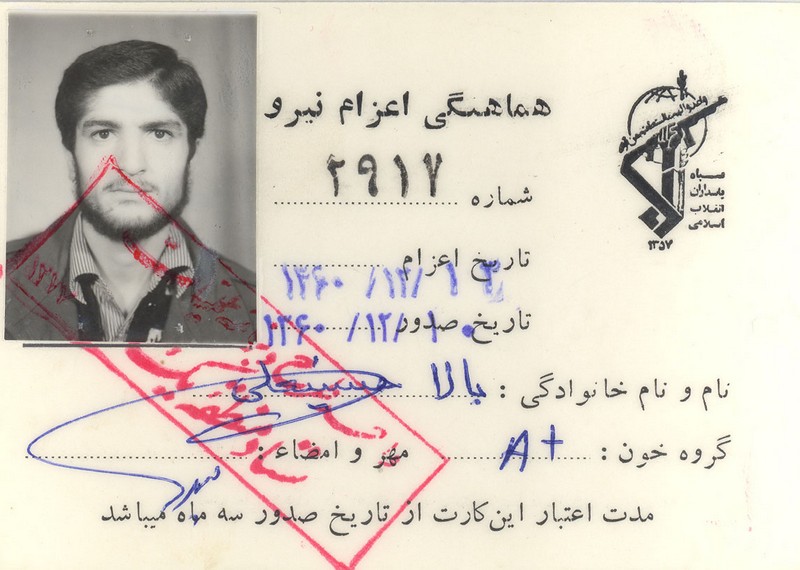 هماهنگی اعزام نیرو
شماره ۲۹۱۷
سپاه
پاسداران
انقلاب
اسلامی
۱۳۵۷
تاریخ اعزام ۱۳۶۰/۱۲/۱۳
تاریخ صدور ۱۳۶۰/۱۲/۱۰
نام و نام خانوادگی : بالا حسینعلی
گروه خون : A+ مهر و امضاء :
مدت اعتبار این‌کارت از تاریخ صدور سه ماه میباشد